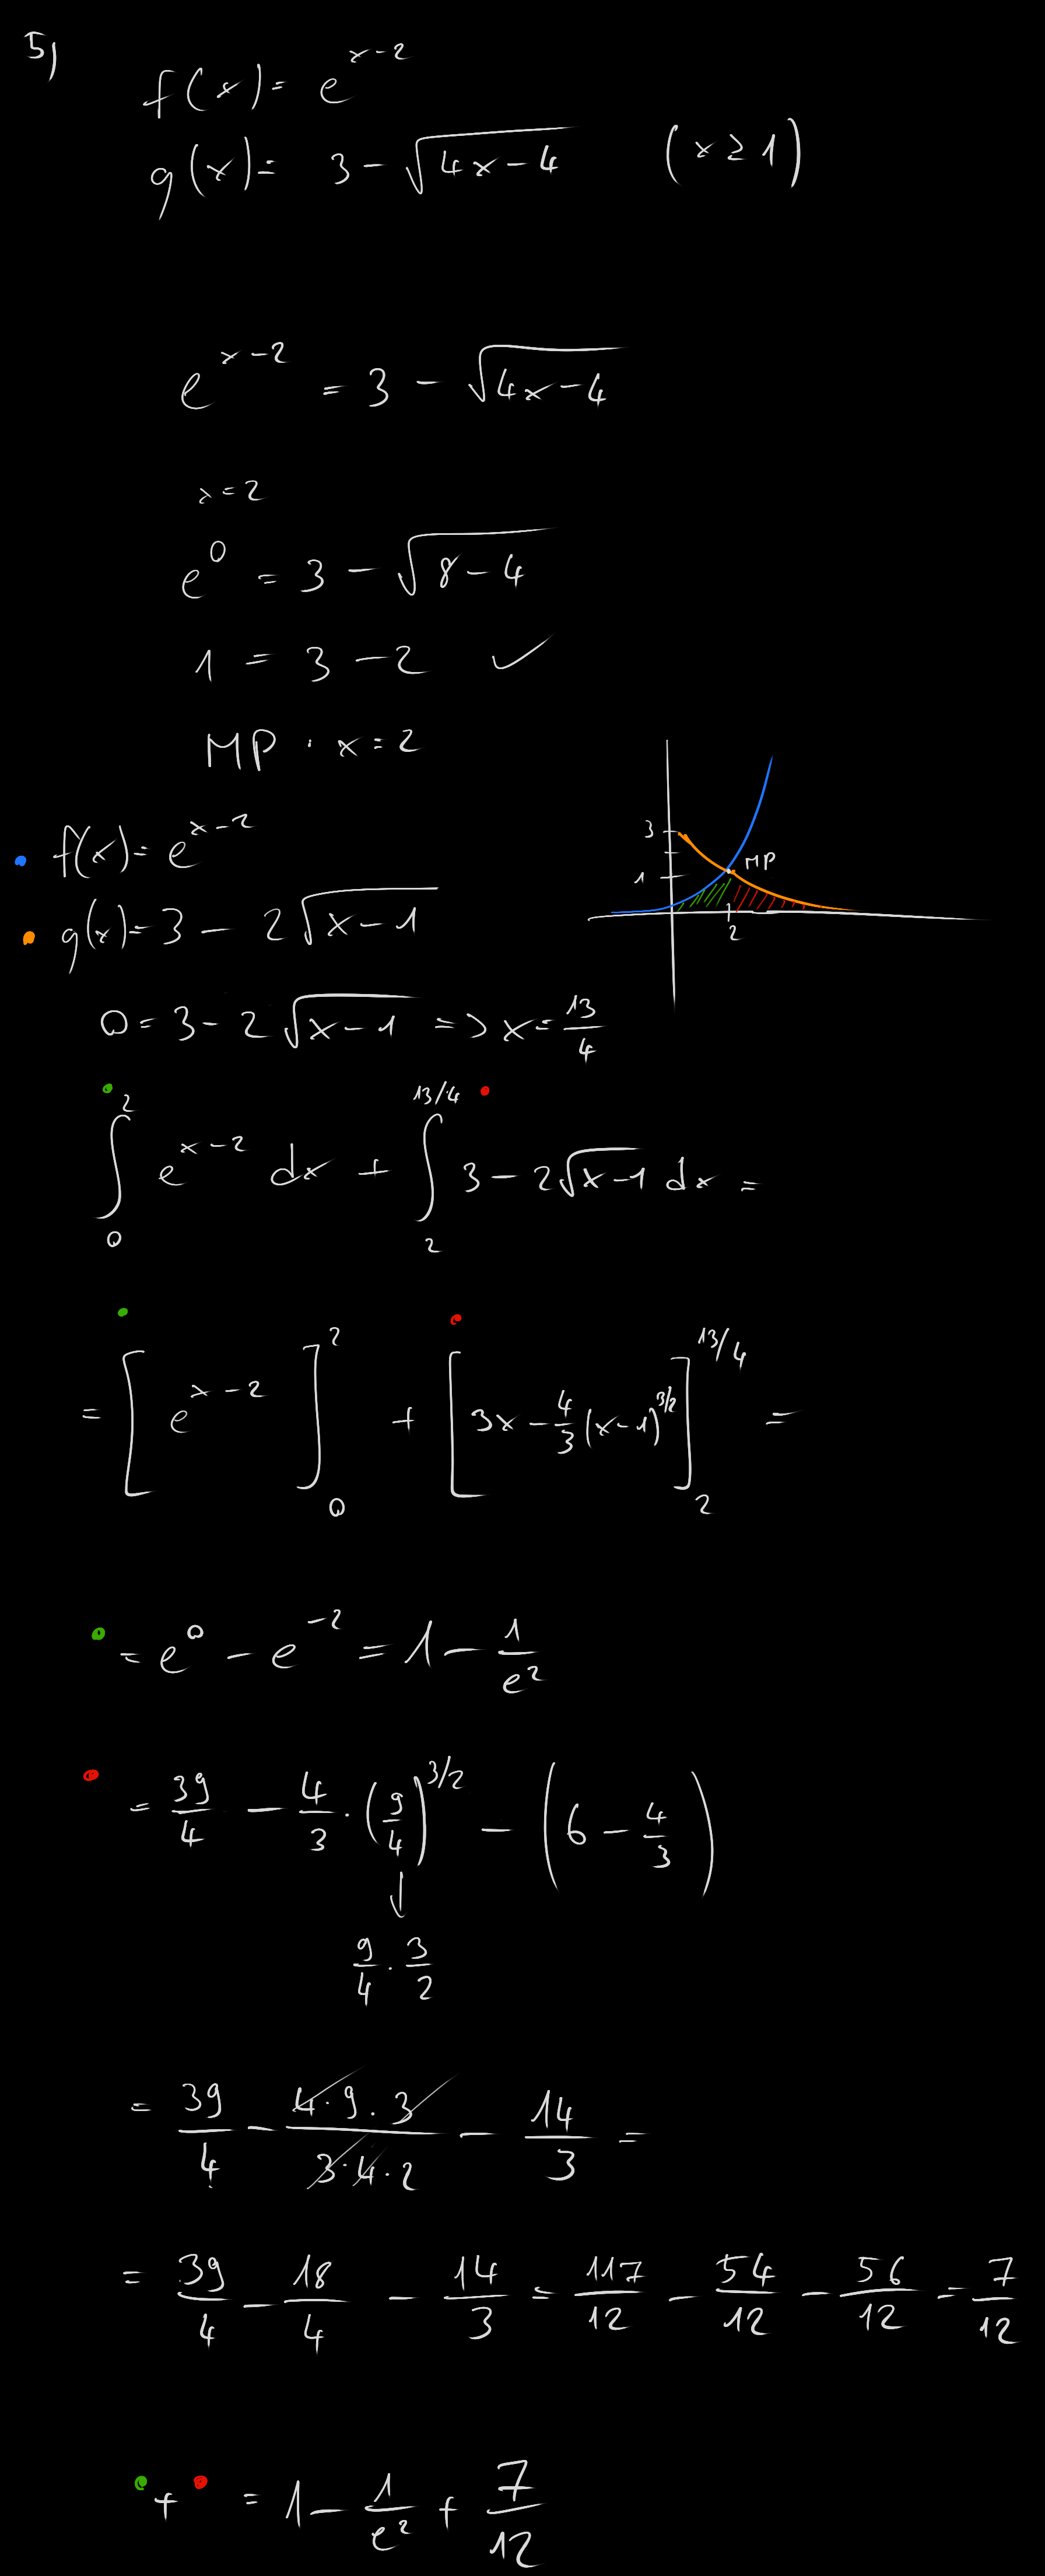 5)
f(x) = e^(x-2)
g(x) = 3 - √(4x-4) (x ≥ 1)
e^(x-2) = 3 - √(4x-4)
x = 2
e^0 = 3 - √(8-4)
1 = 3 - 2 ✓
MP · x = 2
3
1
MP
2
• f(x) = e^(x-2)
• g(x) = 3 - 2√(x-1)
0 = 3 - 2√(x-1) => x = 13/4
∫_0^2 e^(x-2) dx + ∫_2^(13/4) 3 - 2√(x-1) dx =
= [e^(x-2)]_0^2 + [3x - 4/3 (x-1)^(3/2)]_2^(13/4) =
• = e^0 - e^(-2) = 1 - 1/e²
• = 39/4 - 4/3 · (9/4)^(3/2) - (6 - 4/3)
↓
9/4 · 3/2
= 39/4 - (4·9·3)/(3·4·2) - 14/3 =
= 39/4 - 18/4 - 14/3 = 117/12 - 54/12 - 56/12 = 7/12
• + • = 1 - 1/e² + 7/12